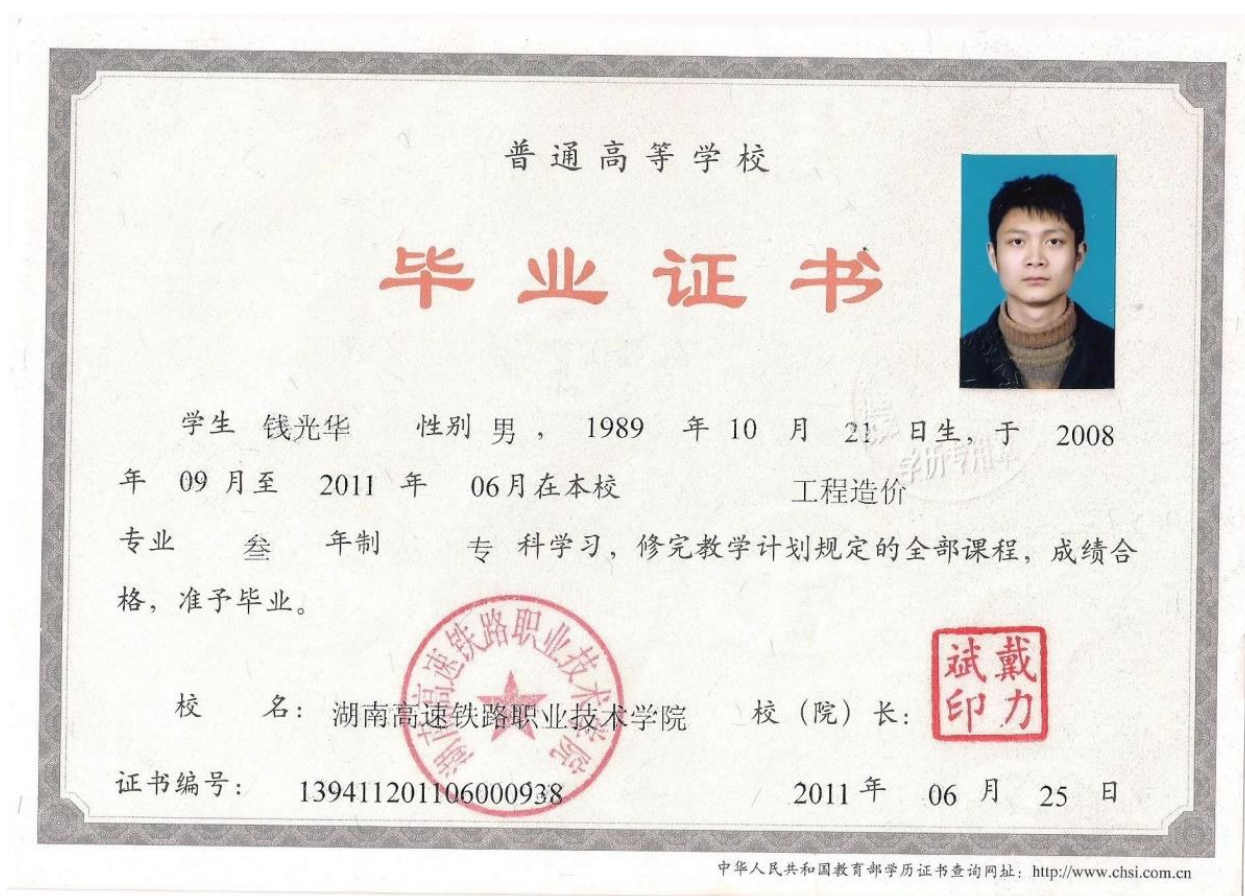 普通高等学校
毕业证书
学生 钱光华 性别 男 ， 1989 年 10 月 21 日生，于 2008
年 09 月至 2011 年 06月在本校 工程造价
专业 叁 年制 专 科学习，修完教学计划规定的全部课程，成绩合
格，准予毕业。
湖南高速铁路职业技术学院
学历专用章
戴力斌印
校 名： 湖南高速铁路职业技术学院 校（院）长：
证书编号： 139411201106000938 2011 年 06 月 25 日
中华人民共和国教育部学历证书查询网址：http://www.chsi.com.cn